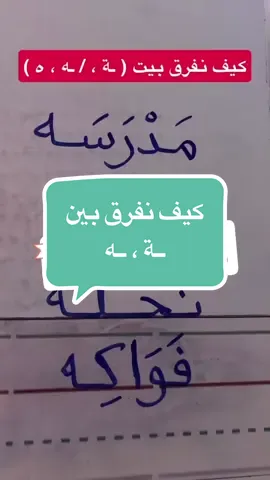 كيف نفرق بيت ( ـة ، / ـه ، ه )
مَدْرَسَـه
كيف نفرق بين
ـة ، ـه
نحلـة
فَوَاكِـه